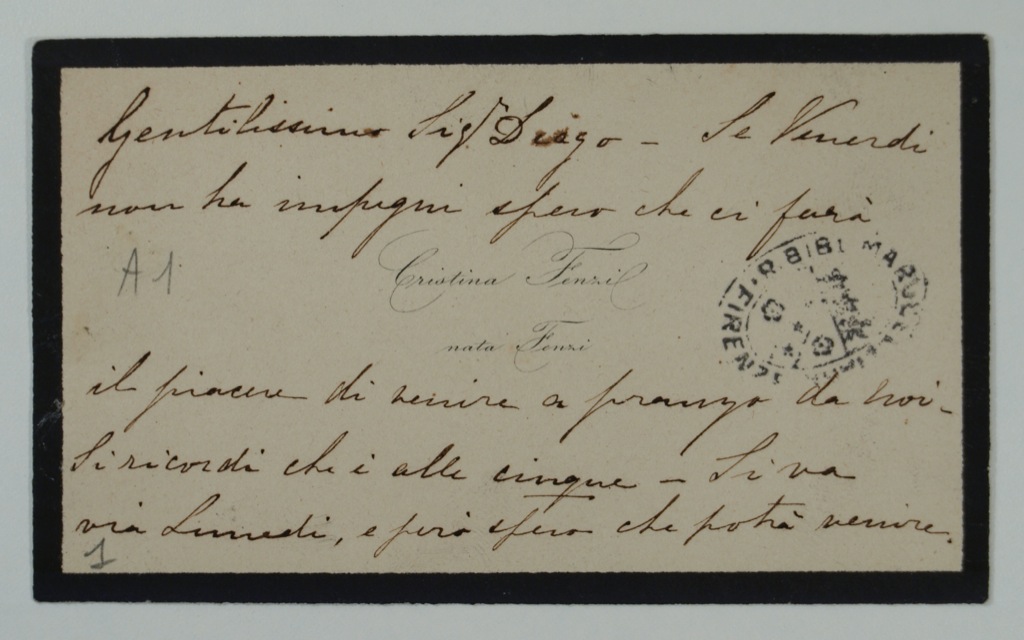 Gentilissimo Sigr Diego - Se Venerdi
non ha impegni spero che ci farà
A1
Cristina Fenzi
nata Fenzi
R. BIBL. MARUCELLIANA
FIRENZE
il piacere di venire a pranzo da noi -
Si ricordi che è alle cinque - Si va
via Lunedi, e però spero che potrà venire.
1